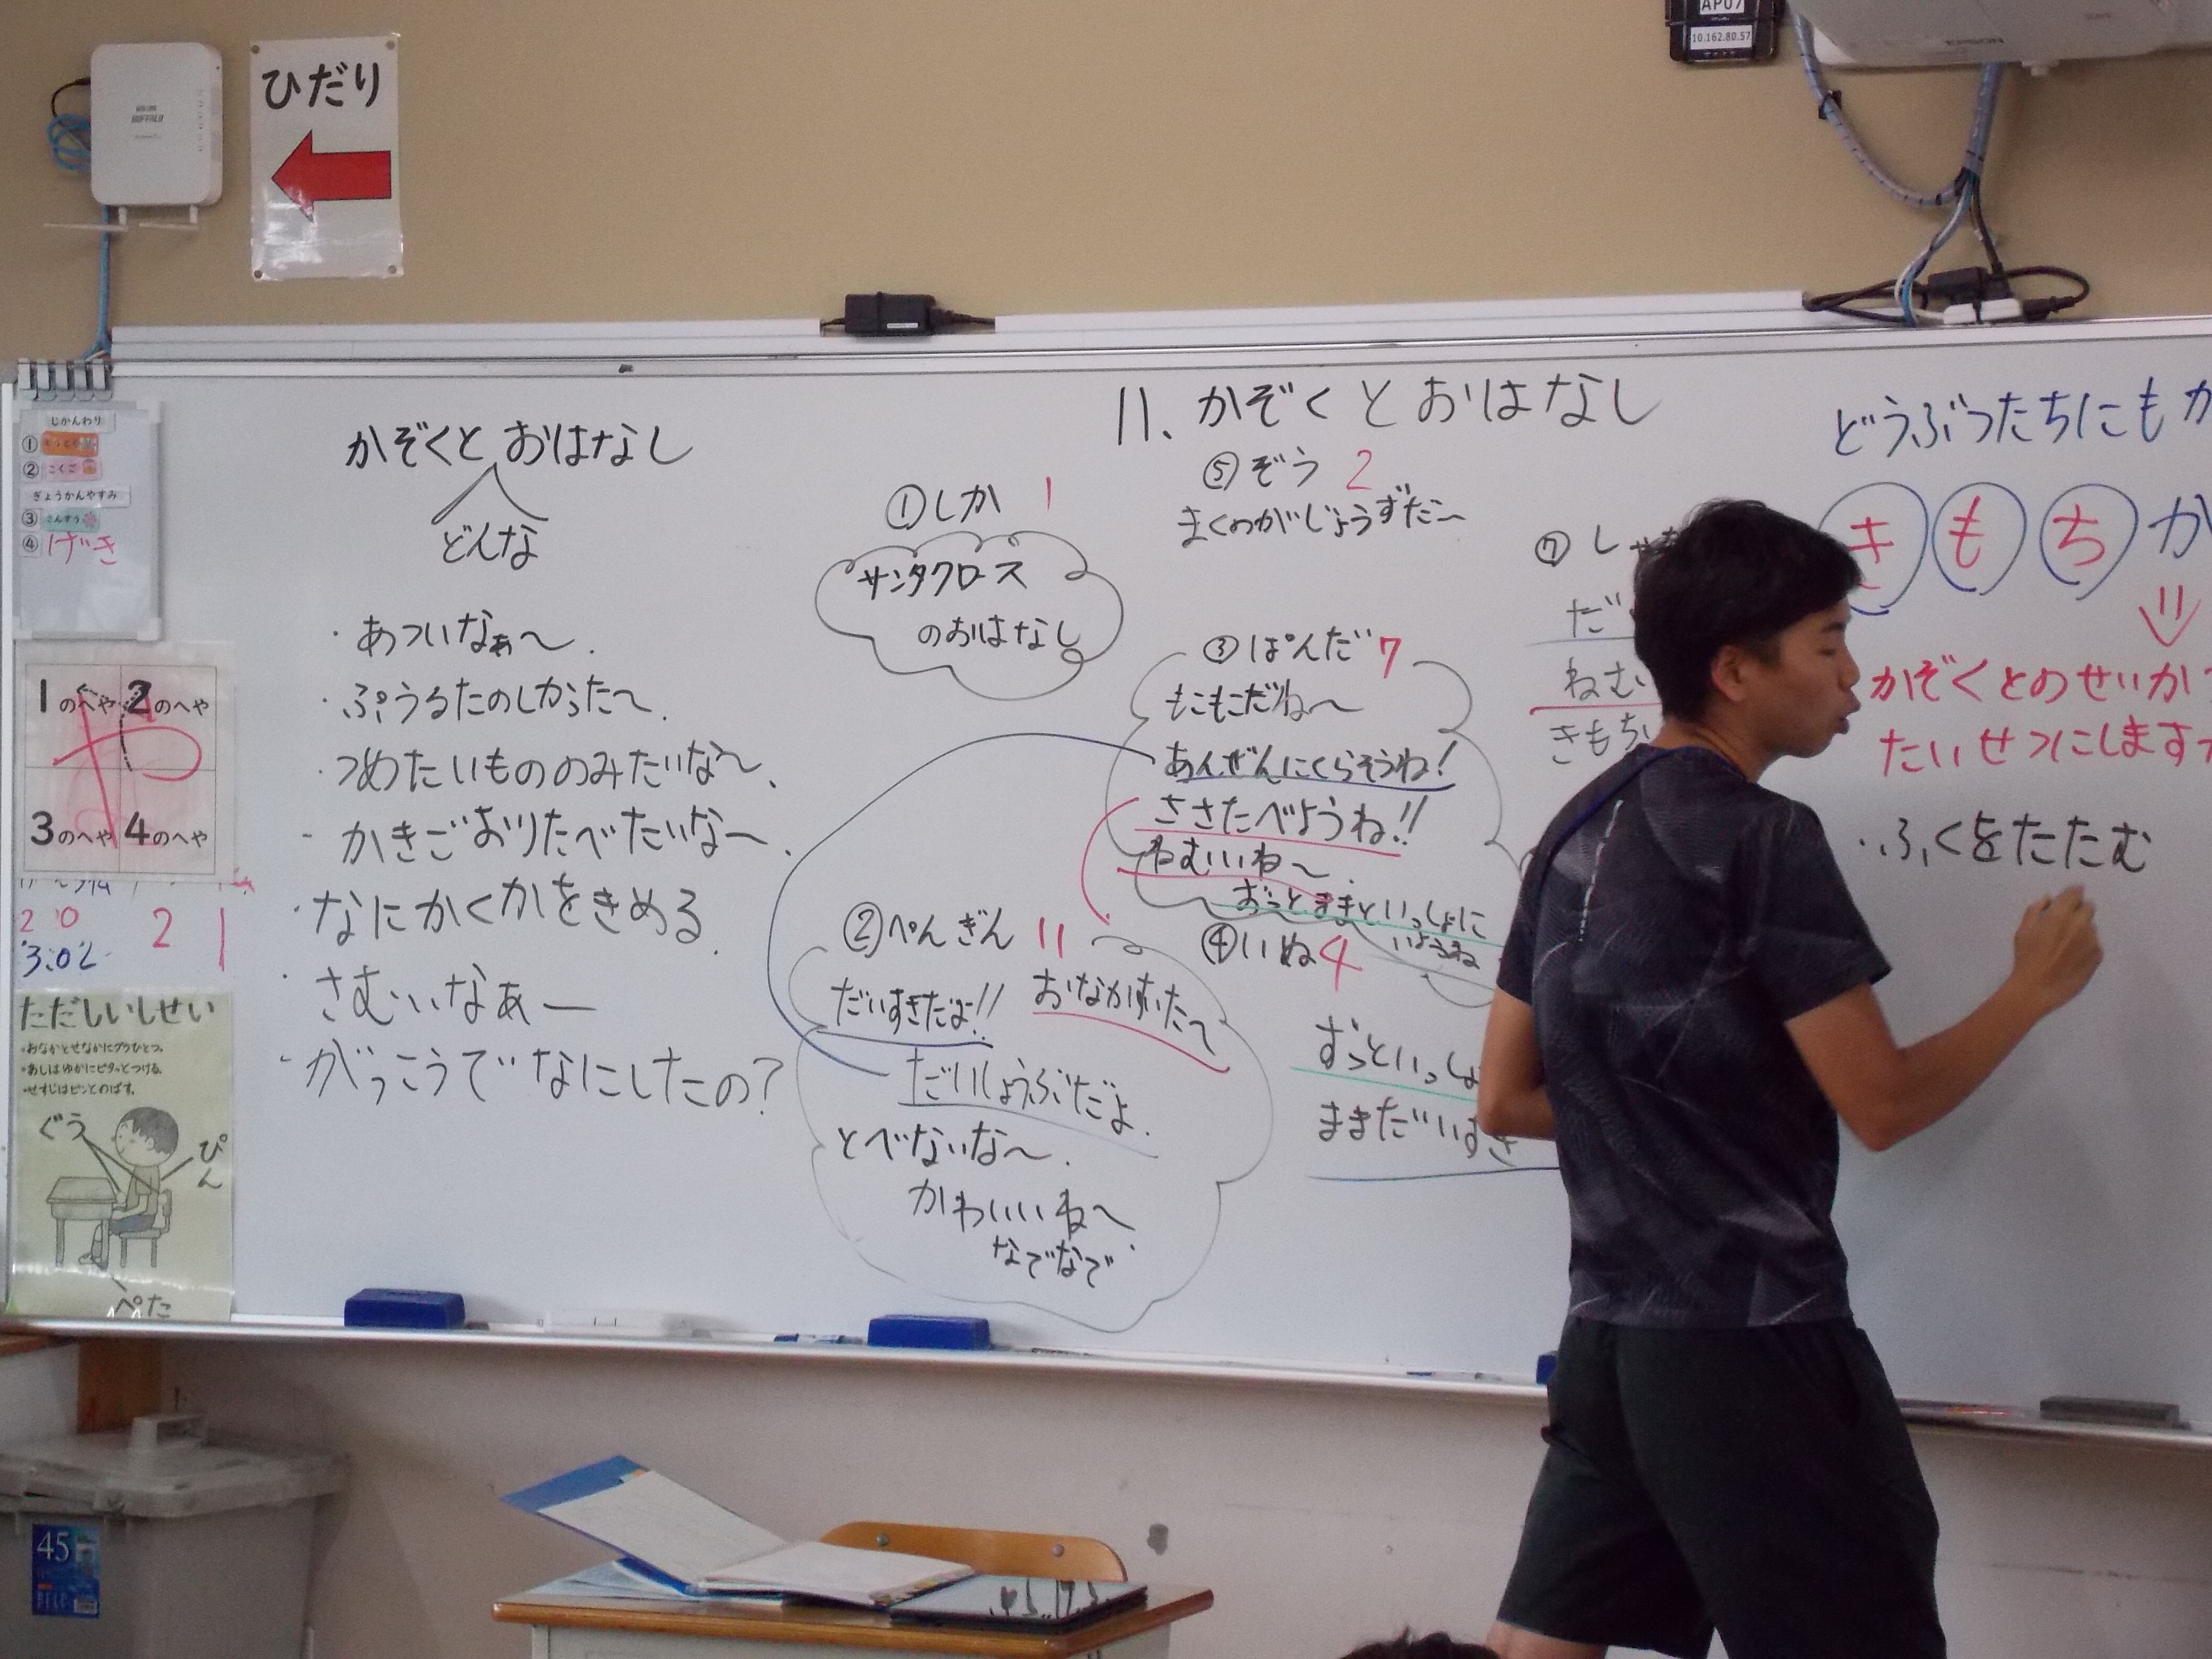 ひだり
BUFFALO
AP07
10.162.80.57
EPSON
じかんわり
①
② こくご
ぎょうかんやすみ
③ さんすう
④ げき
1のへや 2のへや
や
3のへや 4のへや
20 21
3.02
ただしいしせい
・おなかとせなかにグウひとつ。
・あしはゆかにピタッとつける。
・せすじはピンとのばす。
ぐう
ぴん
ぺた
かぞくとおはなし
どんな
・あついなぁ〜.
・ぷうるたのしかった〜.
・つめたいもののみたいな〜.
・かきごおりたべたいな〜.
・なにかくかをきめる.
・さむいなぁー
・がっこうでなにしたの?
11、かぞくとおはなし
①しか 1
サンタクロース
のおはなし
②ぺんぎん 11
だいすきだよ!! おなかすいた〜
だいじょうぶだよ.
とべないな〜.
かわいいね〜.
なでなで
③ぱんだ 7
もこもこだね〜
あんぜんにくらそうね!
ささたべようね!!
ねむいね〜.
ずっとままといっしょに
いようね
④いぬ 4
ずっといっしょ
ままだいすき
⑤ぞう 2
まくのがじょうずだ〜
⑦し
だ
ねむ
きもち
どうぶつたちにもか
きもちか
かぞくとのせいか
たいせつにします
・ふくをたたむ
45